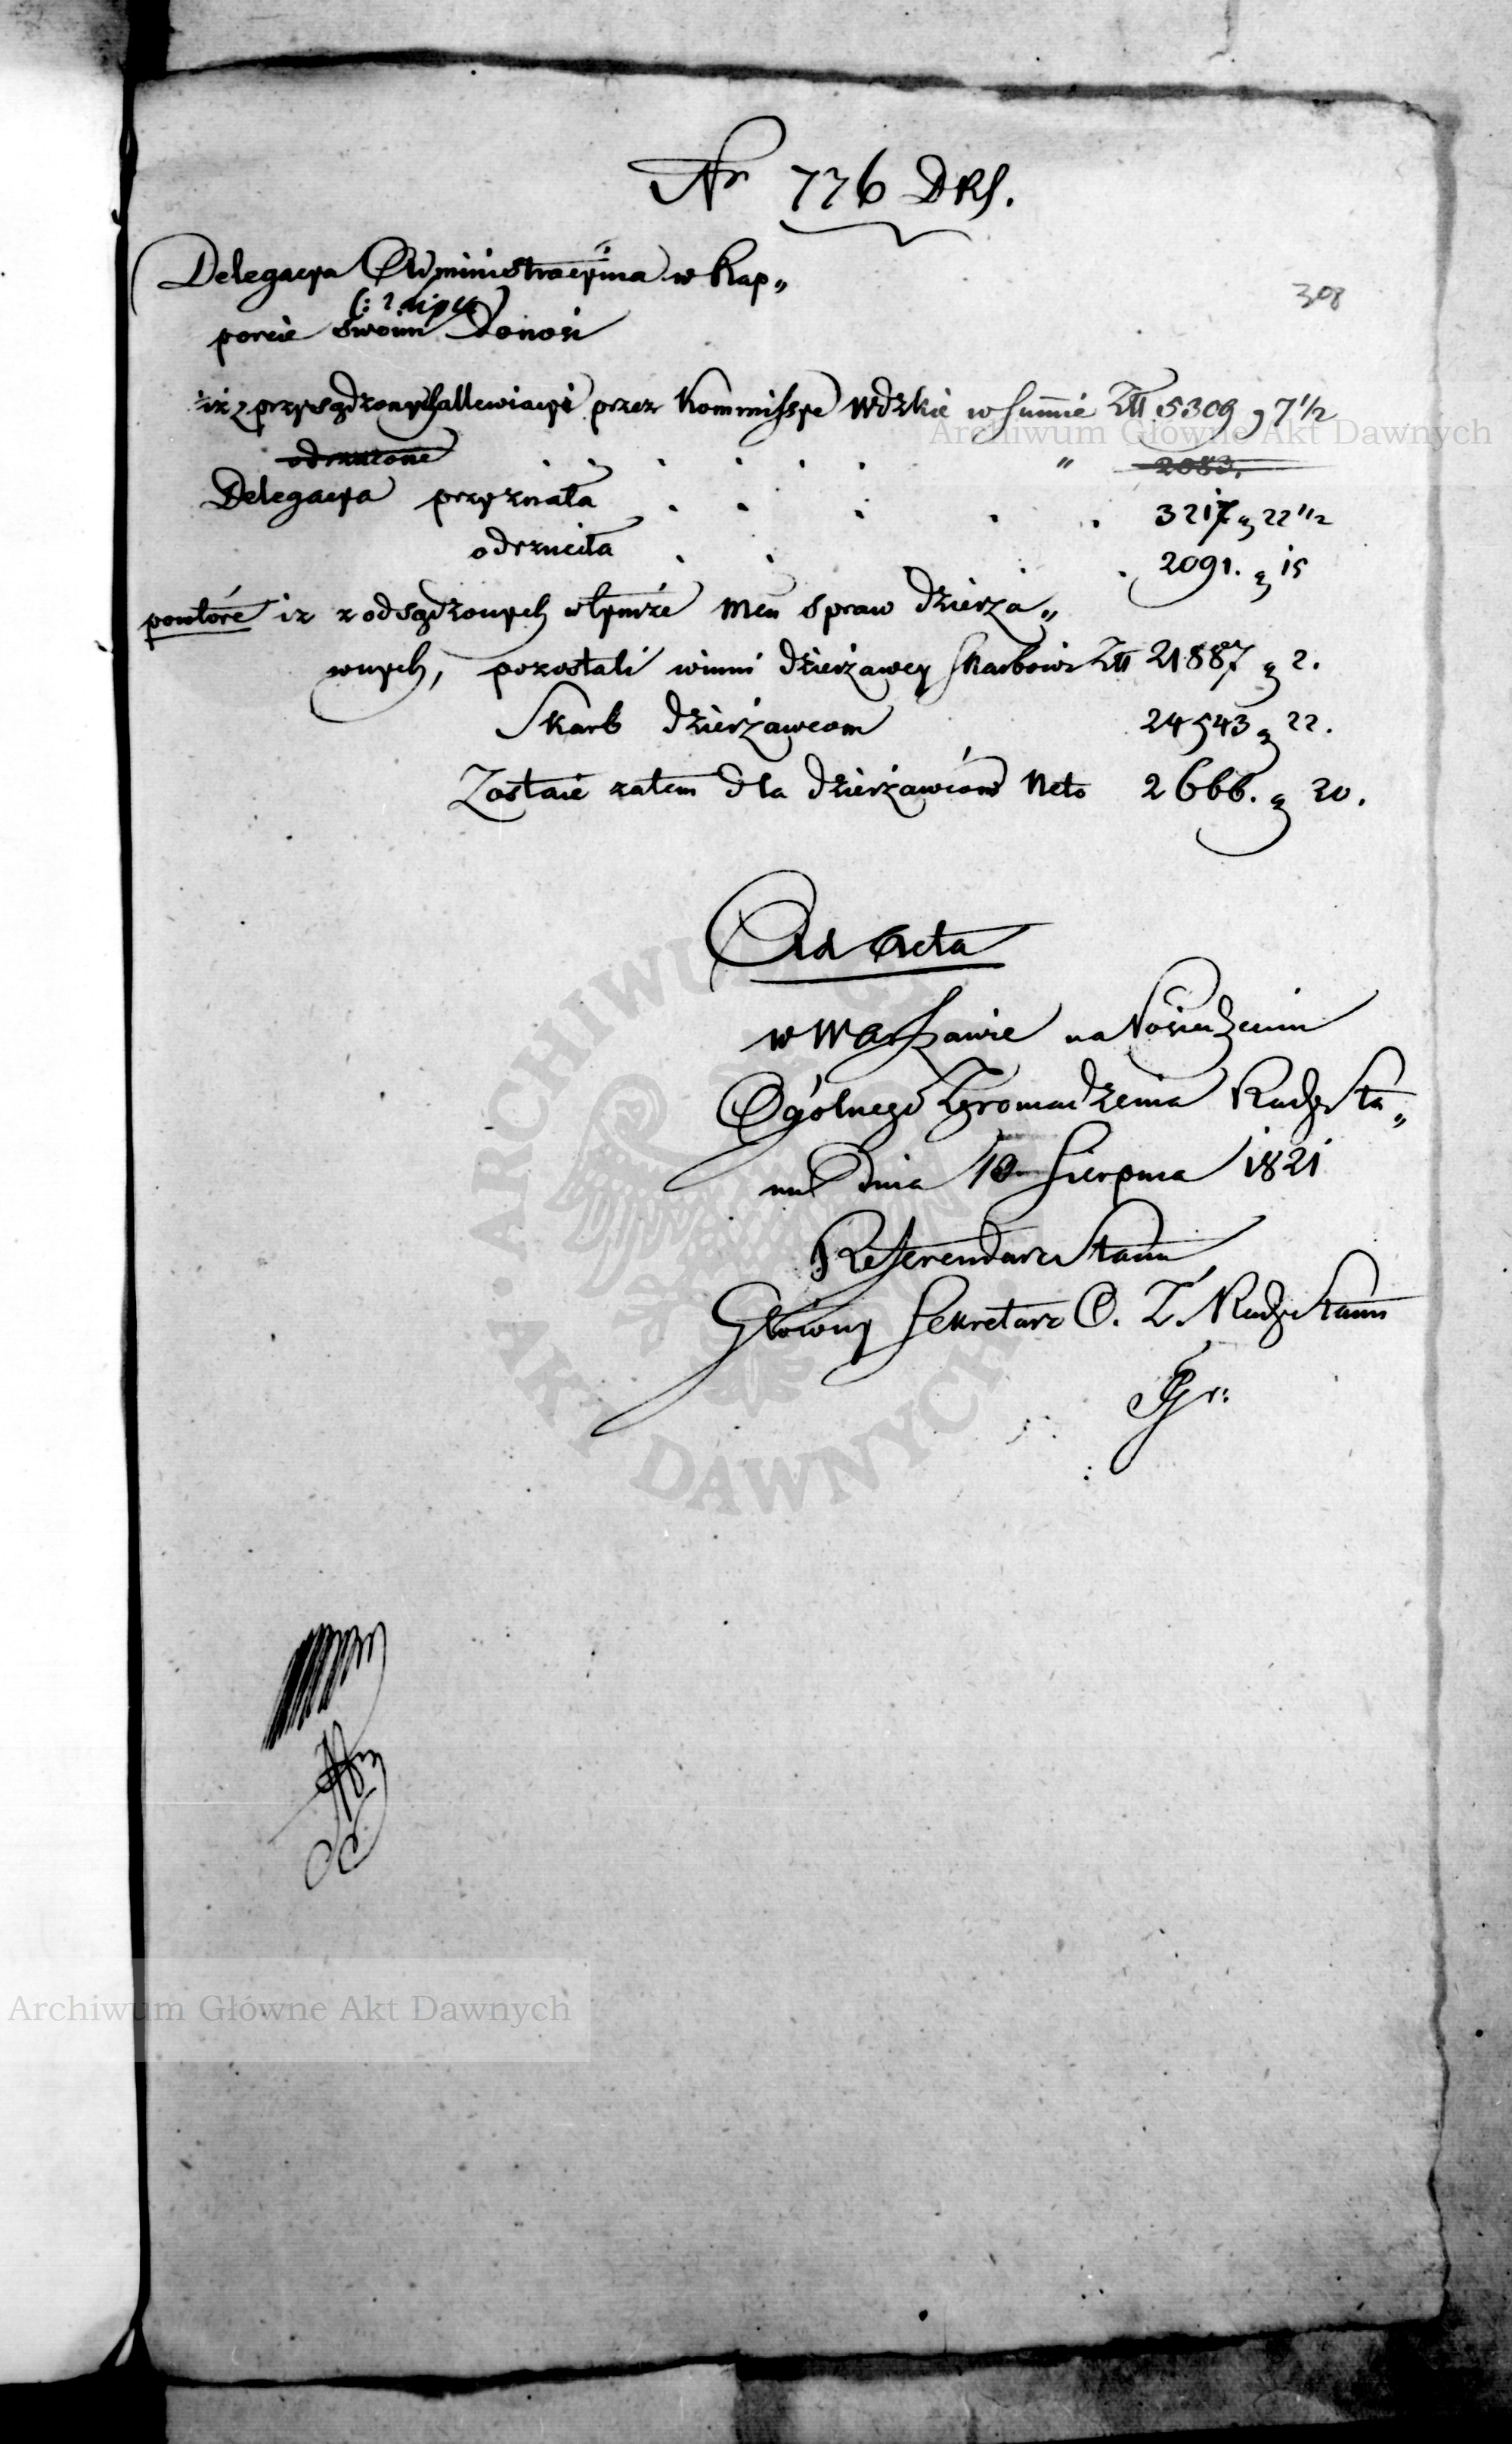 Nr 776 DRS.
Delegacya Administracyina w Rap„
308
(: 2 lipca)
porcie swoim donosi
iż z przysądzonych allewiacyi przez Kommissye Wdzkie w Summie Złł 5309 g 7 1/2
Archiwum Główne Akt Dawnych
odrzucone . . . . . . " 2083.
Delegacya przyznała . . . . . 3217 g 22 1/2
odrzuciła . . . 2091. g 15
powtóre iż z odsądzonych w tymże Mcu spraw dzierża„
wnych, pozostali winni dzierżawcy Skarbowi Złł 21887 g 2.
Skarb dzierżawcom 24543 g 22.
Zostaie zatem dla dzierżawców Neto 2666. g 20.
Ad Acta
w Warszawie na Posiedzeniu
Ogólnego Zgromadzenia Rady Sta„
nu dnia 10 Sierpnia 1821
Referendarz Stanu
Główny Sekretarz O. Z. Rady Stanu
ARCHIWUM GŁÓWNE
AKT DAWNYCH
Archiwum Główne Akt Dawnych